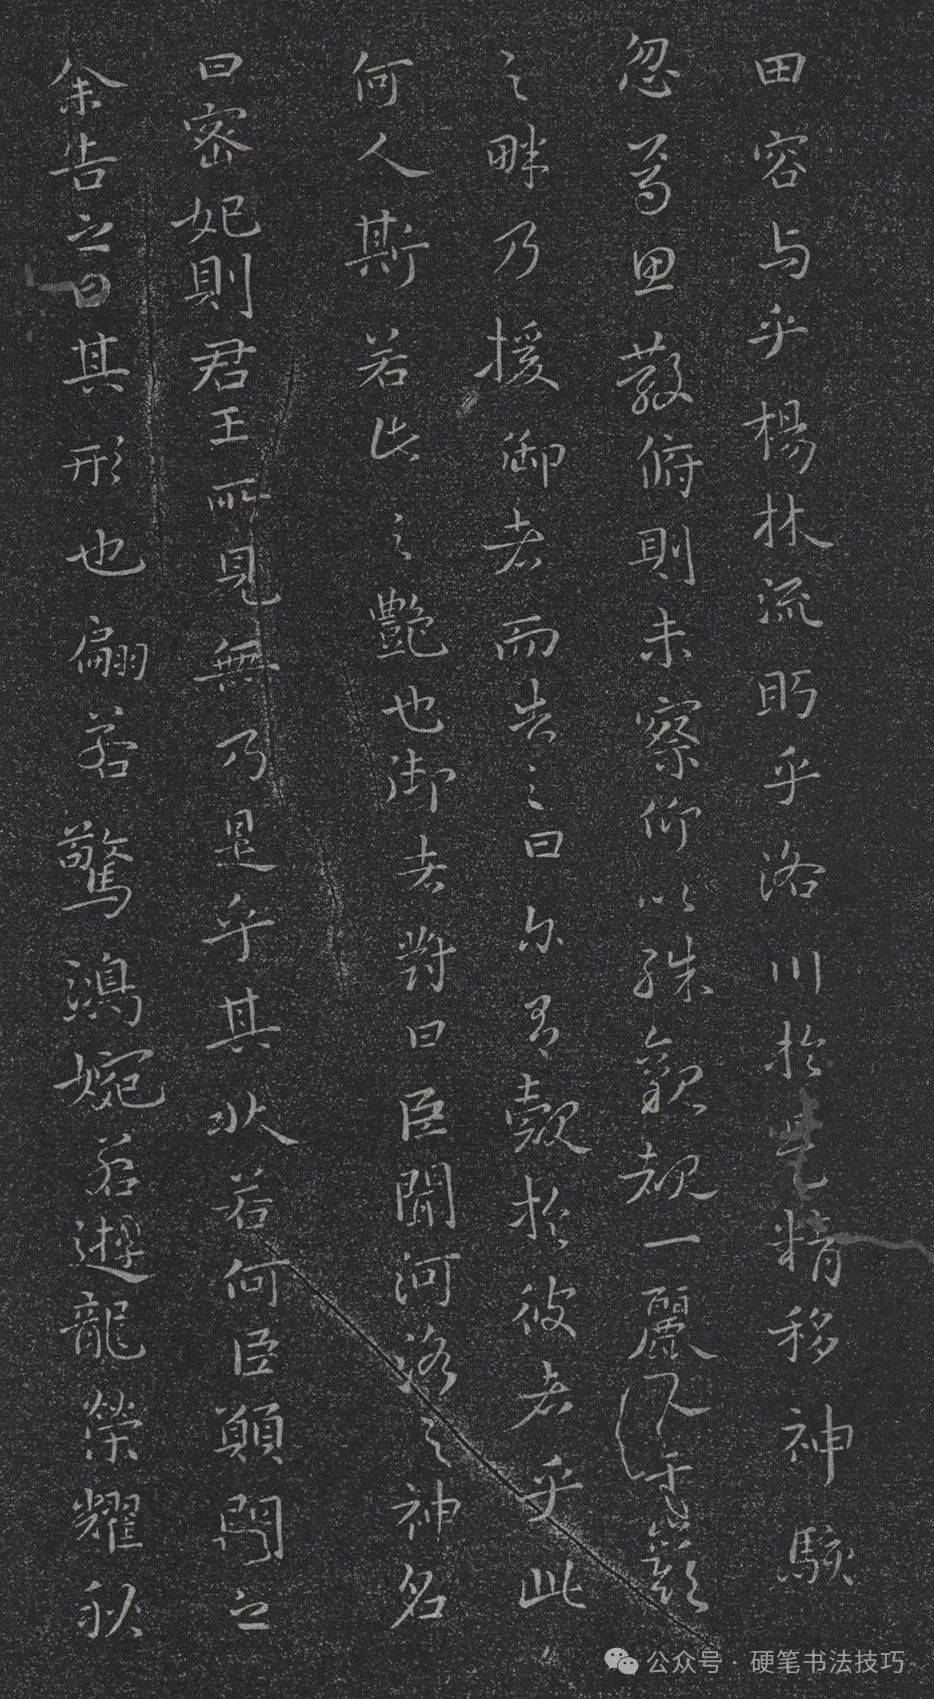 田容与乎楊林流眄乎洛川於是精移神駭
忽焉思散俯則未察仰以殊觀覩一麗人于巖
之畔乃援御者而告之曰尔有覿於彼者乎此
何人斯若此之豔也御者對曰臣聞河洛之神名
曰密妃則君王所見無乃是乎其狀若何臣願聞之
余告之曰其形也翩若驚鴻婉若遊龍榮耀秋
公众号·硬笔书法技巧